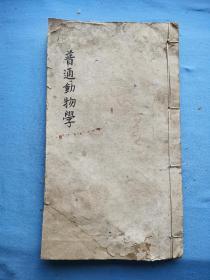 普通動物學